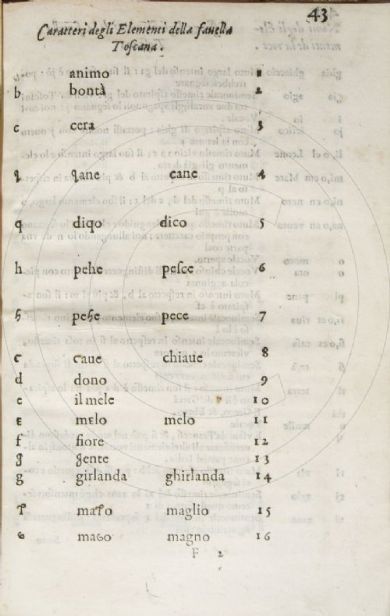 43
Caratteri degli Elementi della favella
Toscana.
animo 1
b bontà 2
c cera 3
ɋ ɋane cane 4
q diqo dico 5
h pehe pesce 6
ɦ peɦe pece 7
caue chiaue 8
d dono 9
e il mele 10
ε mεlo melo 11
f fiore 12
ʒ ʒente 13
g girlanda ghirlanda 14
maglio 15
magno 16
F 2